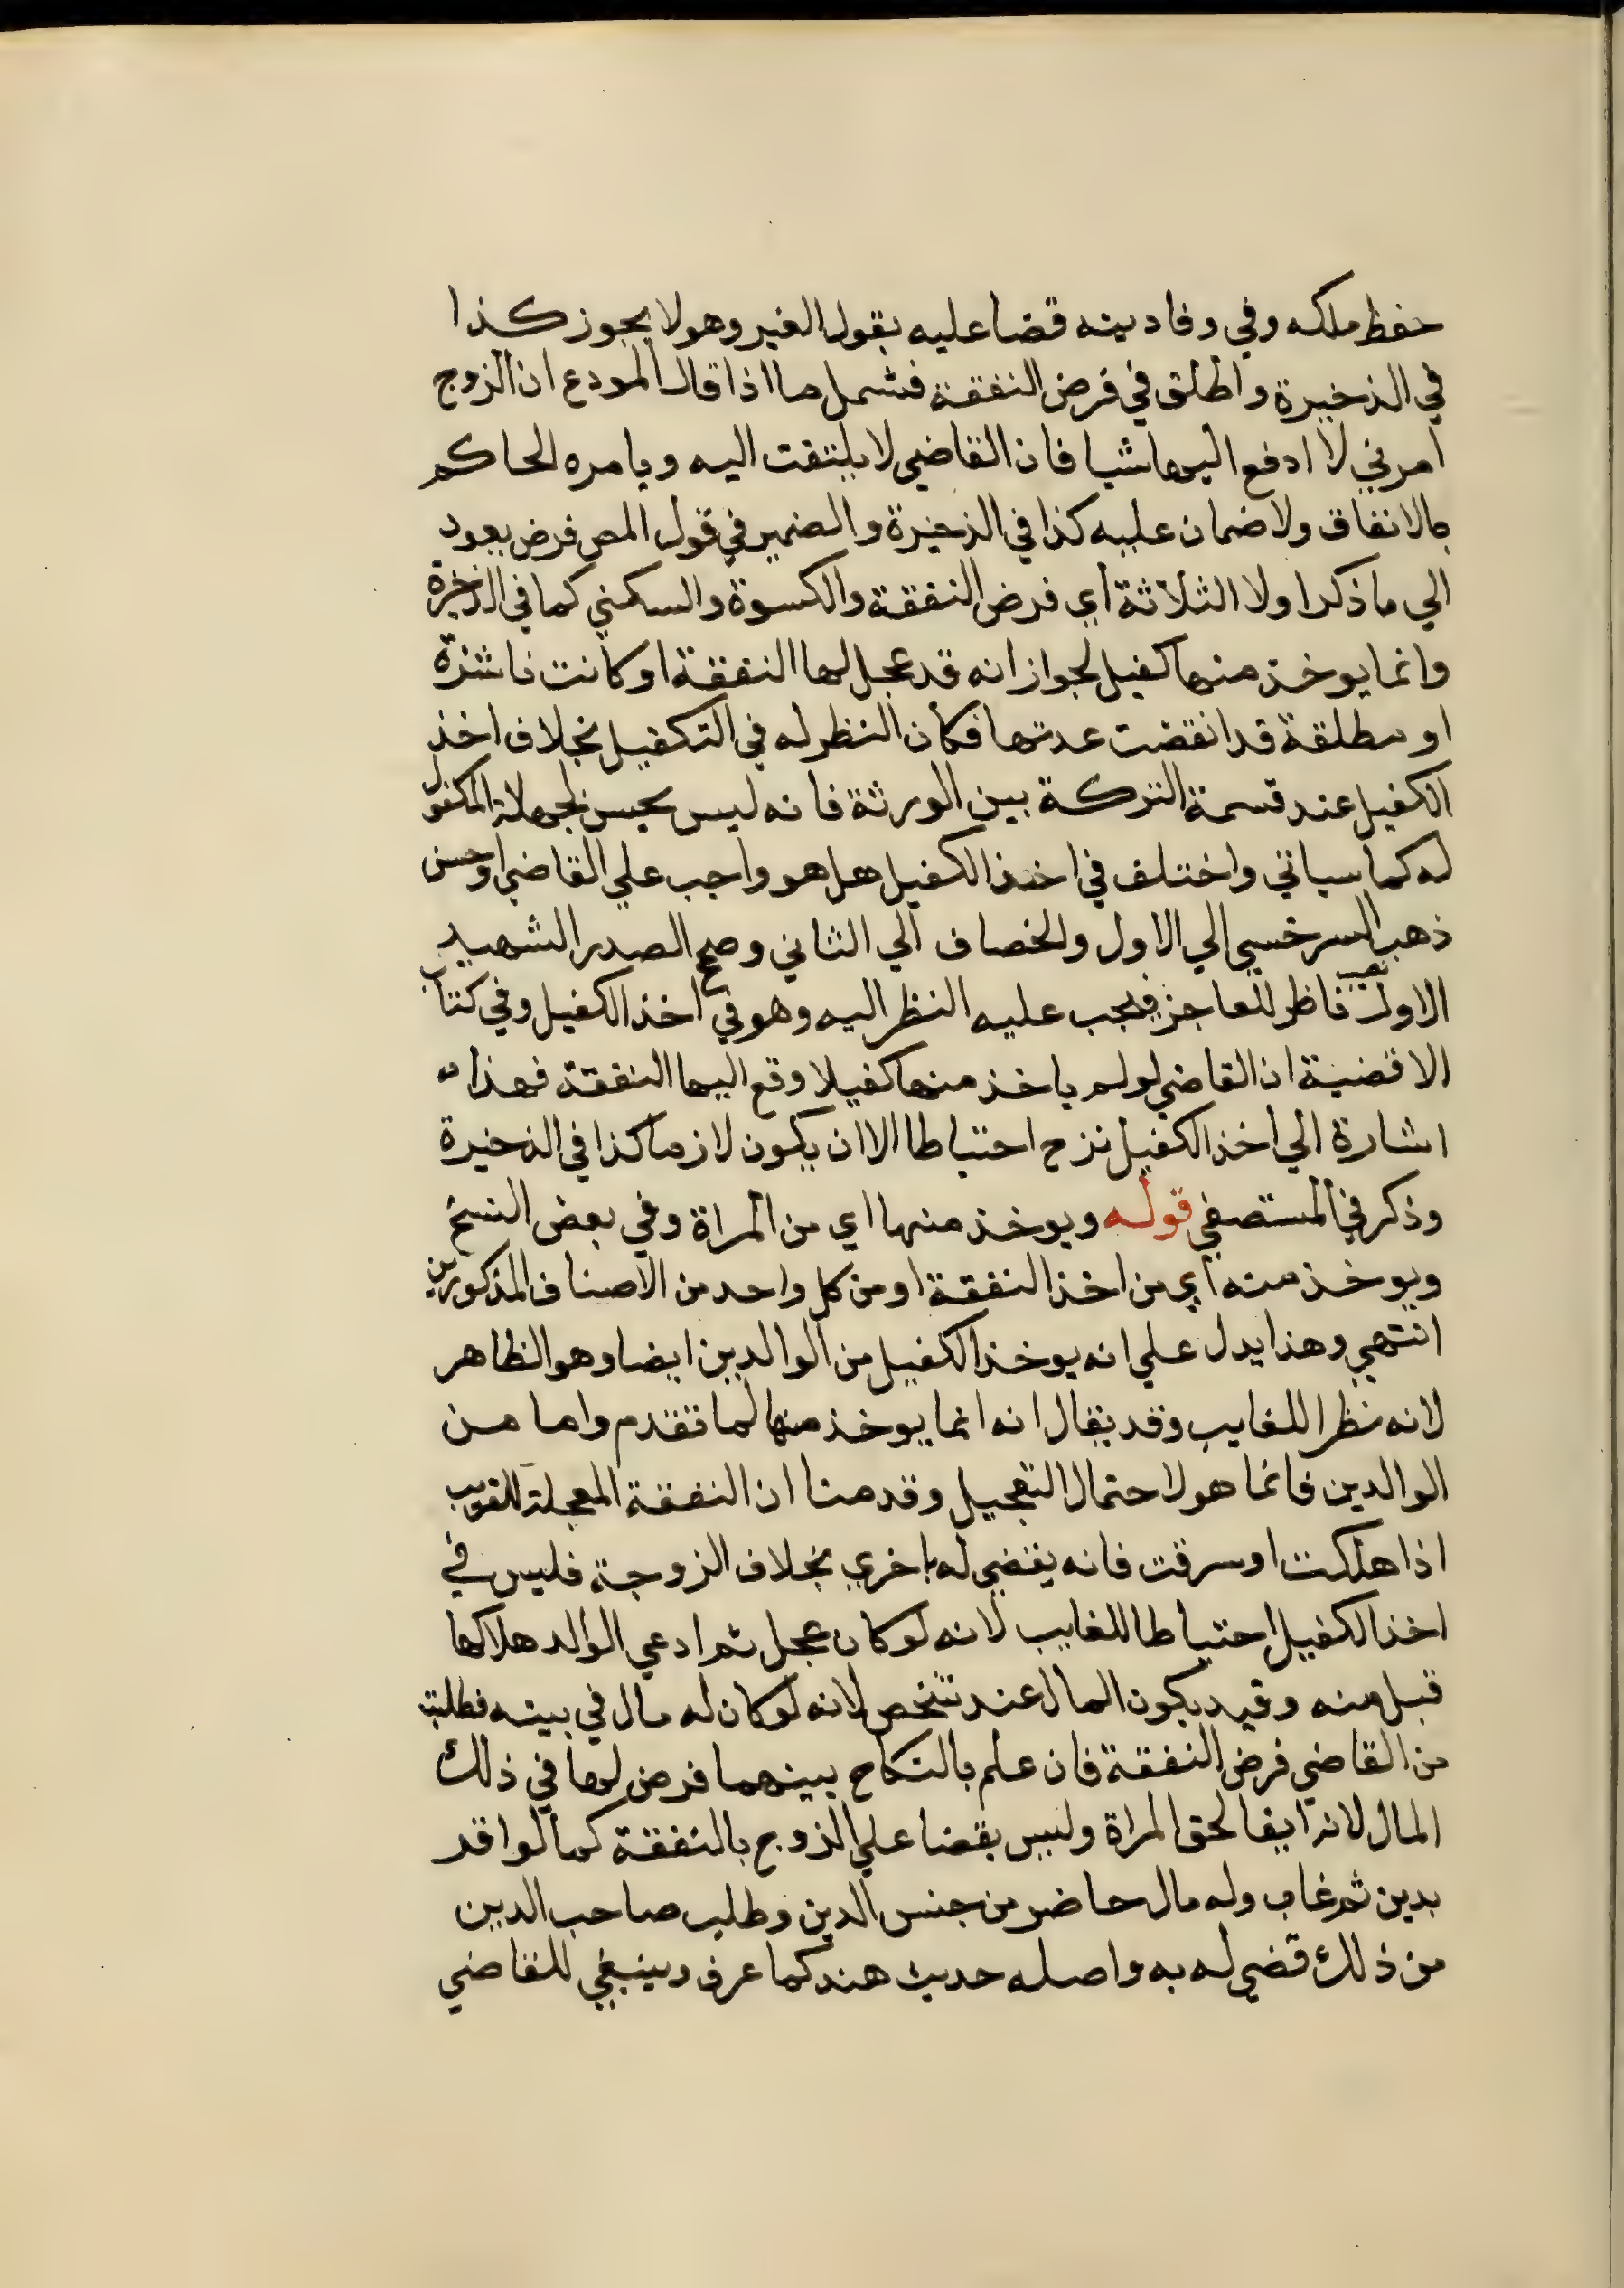 حفظ ملكه وفي وفا دينه قضا عليه بقول الغير وهو لا يجوز كذا
في الذخيرة واطلق في فرض النفقة فشمل ما اذا قال المودع ان الزوج
امرني لا ادفع اليها شيا فان القاضي لا يلتفت اليه ويامره الحاكم
بالانفاق ولا ضمان عليه كذا في الذخيرة والضمير في قول المص فرض يعود
الي ما ذكر اولا الثلاثة اي فرض النفقة والكسوة والسكني كما في الذخيرة
وانما يوخذ منها كفيل لجواز انه قد عجل لها النفقة او كانت ناشزة
او مطلقة قد انقضت عدتها فكان النظر له في التكفيل بخلاف اخذ
الكفيل عند قسمة التركة بين الورثة فانه ليس بحسن لجهالة المكفول
له كما سياتي واختلف في اخذ الكفيل هل هو واجب علي القاضي او حسن
ذهب السرخسي الي الاول والخصاف الي الثاني وصحح الصدر الشهيد
الاول نصب ناظر للعاجز فيجب عليه النظر اليه وهو في اخذ الكفيل وفي كتاب
الاقضية ان القاضي لو لم ياخذ منها كفيلا وقع اليها النفقة فهذا
اشارة الي اخذ الكفيل نزح احتياطا الا ان يكون لازما كذا في الذخيرة
وذكر في المستصفي قوله ويوخذ منها اي من المراة وفي بعض النسخ
ويوخذ منه اي من اخذ النفقة او من كل واحد من الاصناف المذكورين
انتهي وهذا يدل علي انه يوخذ الكفيل من الوالدين ايضا وهو الظاهر
لانه نظرا للغايب وقد يقال انه انما يوخذ منها لما تقدم واما من
الوالدين فانما هو لاحتمال التعجيل وقدمنا ان النفقة المعجلة للقريب
اذا هلكت او سرقت فانه يقضي له باخري بخلاف الزوجة فليس في
اخذ الكفيل احتياطا للغايب لانه لو كان عجل ثم ادعي الوالد هلاكها
قبل منه وقيد بكون المال عند شخص لانه لو كان له مال في بيته فطلبت
من القاضي فرض النفقة فان علم بالنكاح بينهما فرض لها في ذلك
المال لانه ايفا لحق المراة وليس بقضا علي الزوج بالنفقة كما لو اقر
بدين ثم غاب وله مال حاضر من جنس الدين وطلب صاحب الدين
من ذلك قضي له به واصله حديث هند كما عرف وينبغي للقاضي